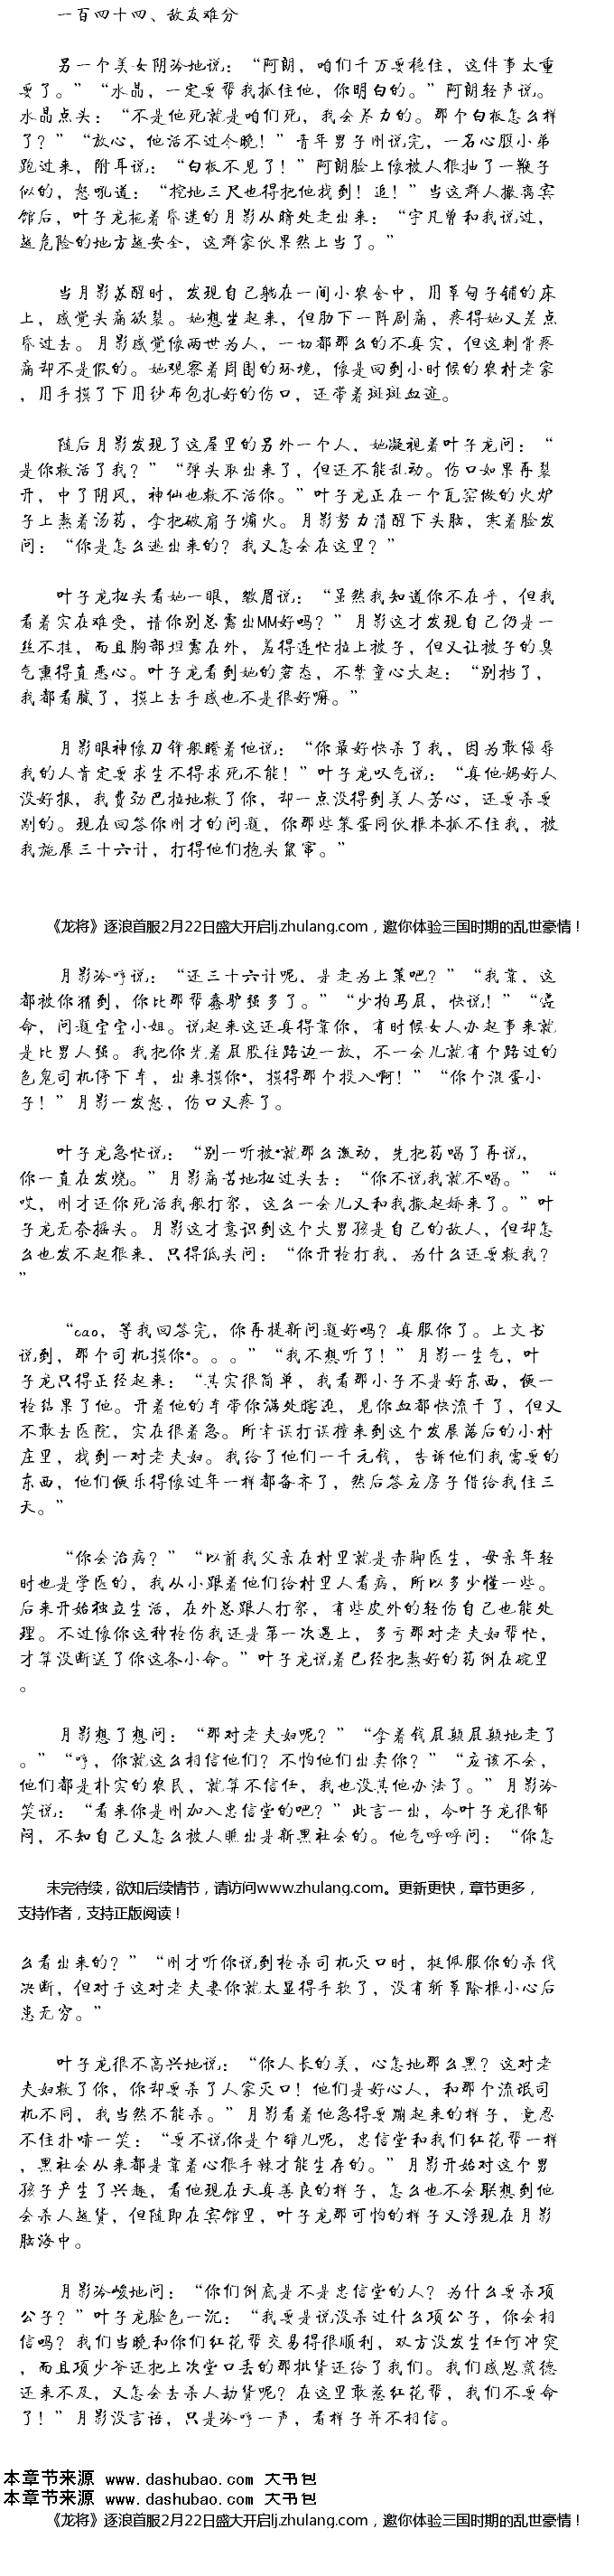 一百四十四、敌友难分
另一个美女阴冷地说：“阿朗，咱们千万要稳住，这件事太重
要了。”“水晶，一定要帮我抓住他，你明白的。”阿朗轻声说。
水晶点头：“不是他死就是咱们死，我会尽力的。那个白板怎么样
了？”“放心，他活不过今晚！”青年男子刚说完，一名心腹小弟
跑过来，附耳说：“白板不见了！”阿朗脸上像被人狠抽了一鞭子
似的，怒吼道：“挖地三尺也得把他找到！追！”当这群人撤离宾
馆后，叶子龙拖着昏迷的月影从暗处走出来：“宇凡曾和我说过，
越危险的地方越安全，这群家伙果然上当了。”
当月影苏醒时，发现自己躺在一间小农舍中，用草甸子铺的床
上，感觉头痛欲裂。她想坐起来，但肋下一阵剧痛，疼得她又差点
昏过去。月影感觉像两世为人，一切都那么的不真实，但这刺骨疼
痛却不是假的。她观察着周围的环境，像是回到小时候的农村老家
，用手摸了下用纱布包扎好的伤口，还带着斑斑血迹。
随后月影发现了这屋里的另外一个人，她凝视着叶子龙问：“
是你救活了我？”“弹头取出来了，但还不能乱动。伤口如果再裂
开，中了阴风，神仙也救不活你。”叶子龙正在一个瓦窑做的火炉
子上熬着汤药，拿把破扇子煽火。月影努力清醒下头脑，寒着脸发
问：“你是怎么逃出来的？我又怎会在这里？”
叶子龙扭头看她一眼，皱眉说：“虽然我知道你不在乎，但我
看着实在难受，请你别总露出MM好吗？”月影这才发现自己仍是一
丝不挂，而且胸部坦露在外，羞得连忙拉上被子，但又让被子的臭
气熏得直恶心。叶子龙看到她的窘态，不禁童心大起：“别挡了，
我都看腻了，摸上去手感也不是很好嘛。”
月影眼神像刀锋般瞪着他说：“你最好快杀了我，因为敢侮辱
我的人肯定要求生不得求死不能！”叶子龙叹气说：“真他妈好人
没好报，我费劲巴拉地救了你，却一点没得到美人芳心，还要杀要
剐的。现在回答你刚才的问题，你那些笨蛋同伙根本抓不住我，被
我施展三十六计，打得他们抱头鼠窜。”
《龙将》逐浪首服2月22日盛大开启lj.zhulang.com，邀你体验三国时期的乱世豪情！
月影冷哼说：“还三十六计呢，是走为上策吧？”“我靠，这
都被你猜到，你比那帮蠢驴强多了。”“少拍马屁，快说！”“遵
命，问题宝宝小姐。说起来这还真得靠你，有时候女人办起事来就
是比男人强。我把你光着屁股往路边一放，不一会儿就有个路过的
色鬼司机停下车，出来摸你*，摸得那个投入啊！”“你个混蛋小
子！”月影一发怒，伤口又疼了。
叶子龙急忙说：“别一听被*就那么激动，先把药喝了再说，
你一直在发烧。”月影痛苦地扭过头去：“你不说我就不喝。”“
哎，刚才还你死活我般打架，这么一会儿又和我撒起娇来了。”叶
子龙无奈摇头。月影这才意识到这个大男孩是自己的敌人，但却怎
么也发不起狠来，只得低头问：“你开枪打我，为什么还要救我？
”
“cao，等我回答完，你再提新问题好吗？真服你了。上文书
说到，那个司机摸你*。。。”“我不想听了！”月影一生气，叶
子龙只得正经起来：“其实很简单，我看那小子不是好东西，便一
枪结果了他。开着他的车带你满处瞎逛，见你血都快流干了，但又
不敢去医院，实在很着急。所幸误打误撞来到这个发展落后的小村
庄里，找到一对老夫妇。我给了他们一千元钱，告诉他们我需要的
东西，他们便乐得像过年一样都备齐了，然后答应房子借给我住三
天。”
“你会治病？”“以前我父亲在村里就是赤脚医生，母亲年轻
时也是学医的，我从小跟着他们给村里人看病，所以多少懂一些。
后来开始独立生活，在外总跟人打架，有些皮外的轻伤自己也能处
理。不过像你这种枪伤我还是第一次遇上，多亏那对老夫妇帮忙，
才算没断送了你这条小命。”叶子龙说着已经把熬好的药倒在碗里
。
月影想了想问：“那对老夫妇呢？”“拿着钱屁颠屁颠地走了
。”“哼，你就这么相信他们？不怕他们出卖你？”“应该不会，
他们都是朴实的农民，就算不信任，我也没其他办法了。”月影冷
笑说：“看来你是刚加入忠信堂的吧？”此言一出，令叶子龙很郁
闷，不知自己又怎么被人瞧出是新黑社会的。他气呼呼问：“你怎
未完待续，欲知后续情节，请访问www.zhulang.com。更新更快，章节更多，
支持作者，支持正版阅读！
么看出来的？”“刚才听你说到枪杀司机灭口时，挺佩服你的杀伐
决断，但对于这对老夫妻你就太显得手软了，没有斩草除根小心后
患无穷。”
叶子龙很不高兴地说：“你人长的美，心怎地那么黑？这对老
夫妇救了你，你却要杀了人家灭口！他们是好心人，和那个流氓司
机不同，我当然不能杀。”月影看着他急得要蹦起来的样子，竟忍
不住扑哧一笑：“要不说你是个雏儿呢，忠信堂和我们红花帮一样
，黑社会从来都是靠着心狠手辣才能生存的。”月影开始对这个男
孩子产生了兴趣，看他现在天真善良的样子，怎么也不会联想到他
会杀人越货，但随即在宾馆里，叶子龙那可怕的样子又浮现在月影
脑海中。
月影冷峻地问：“你们倒底是不是忠信堂的人？为什么要杀项
公子？”叶子龙脸色一沉：“我要是说没杀过什么项公子，你会相
信吗？我们当晚和你们红花帮交易得很顺利，双方没发生任何冲突
，而且项少爷还把上次堂口丢的那批货还给了我们。我们感恩戴德
还来不及，又怎会去杀人劫货呢？在这里敢惹红花帮，我们不要命
了！”月影没言语，只是冷哼一声，看样子并不相信。
本章节来源 www.dashubao.com 大书包
本章节来源 www.dashubao.com 大书包
《龙将》逐浪首服2月22日盛大开启lj.zhulang.com，邀你体验三国时期的乱世豪情！